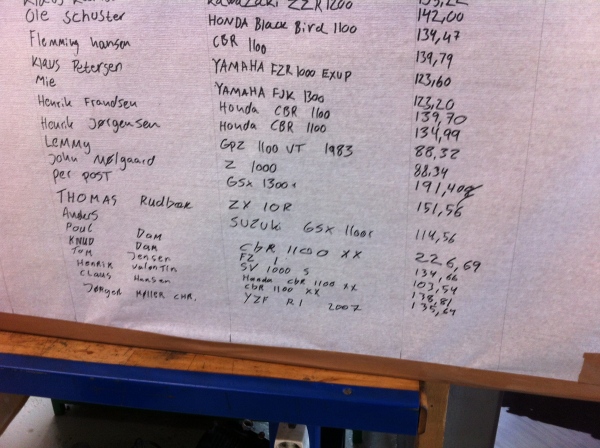 Klaus Kawazaki ZZR1200
Ole Schuster HONDA Black Bird 1100 142,00
Flemming hansen CBR 1100 134,47
Klaus Petersen YAMAHA FZR1000 EXUP 139,79
Mie YAMAHA FJR 1300 123,60
Henrik Frandsen Honda CBR 1100 123,20
Henrik Jørgensen Honda CBR 1100 139,70
Lemmy GPZ 1100 UT 1983 134,99
John Mølgaard Z 1000 88,32
per post GSX 1300r 88,34
THOMAS Rudbæk ZX 10R 191,40
Anders SUZUKI GSX 1100F 151,56
Poul Dam CBR 1100 XX 114,56
KNUD Dam FZ 1 226,69
Tom Jensen SV 1000 S 134,66
Henrik Valentin Honda cbr 1100 XX 103,54
Claus Hansen cbr 1100 XX 138,81
Jørgen Møller CHR. YZF R1 2007 135,67